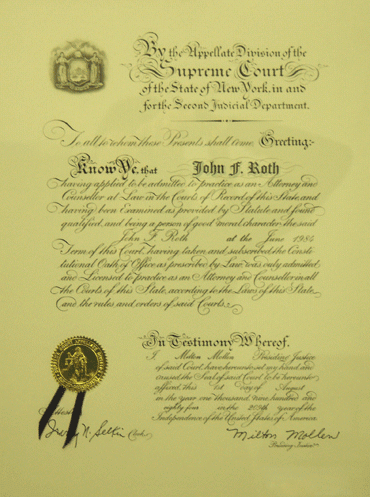 By the Appellate Division of the
Supreme Court
of the State of New York, in and
for the Second Judicial Department.
To all to whom these Presents shall come Greeting:-
Know Ye, that John F. Roth
having applied to be admitted to practice as an Attorney and
Counsellor at Law in the Courts of Record of this State, and
having been Examined as provided by Statute and found
qualified, and being a person of good moral character, the said
John F. Roth at the June 1984
Term of this Court, having taken and subscribed the Consti-
tutional Oath of Office as prescribed by Law, was duly admitted
and Licensed to practice as an Attorney and Counsellor in all
the Courts of this State, according to the Laws of this State
and the rules and orders of said Courts.
In Testimony Whereof,
I Milton Mollen Presiding Justice
of said Court have hereunto set my hand and
caused the Seal of said Court to be hereunto
affixed, this 1st day of August
in the year one thousand nine hundred and
eighty four in the 209th year of the
Independence of the United States of America
Attest:
Irving N. Selkin Clerk
Milton Mollen
Presiding Justice